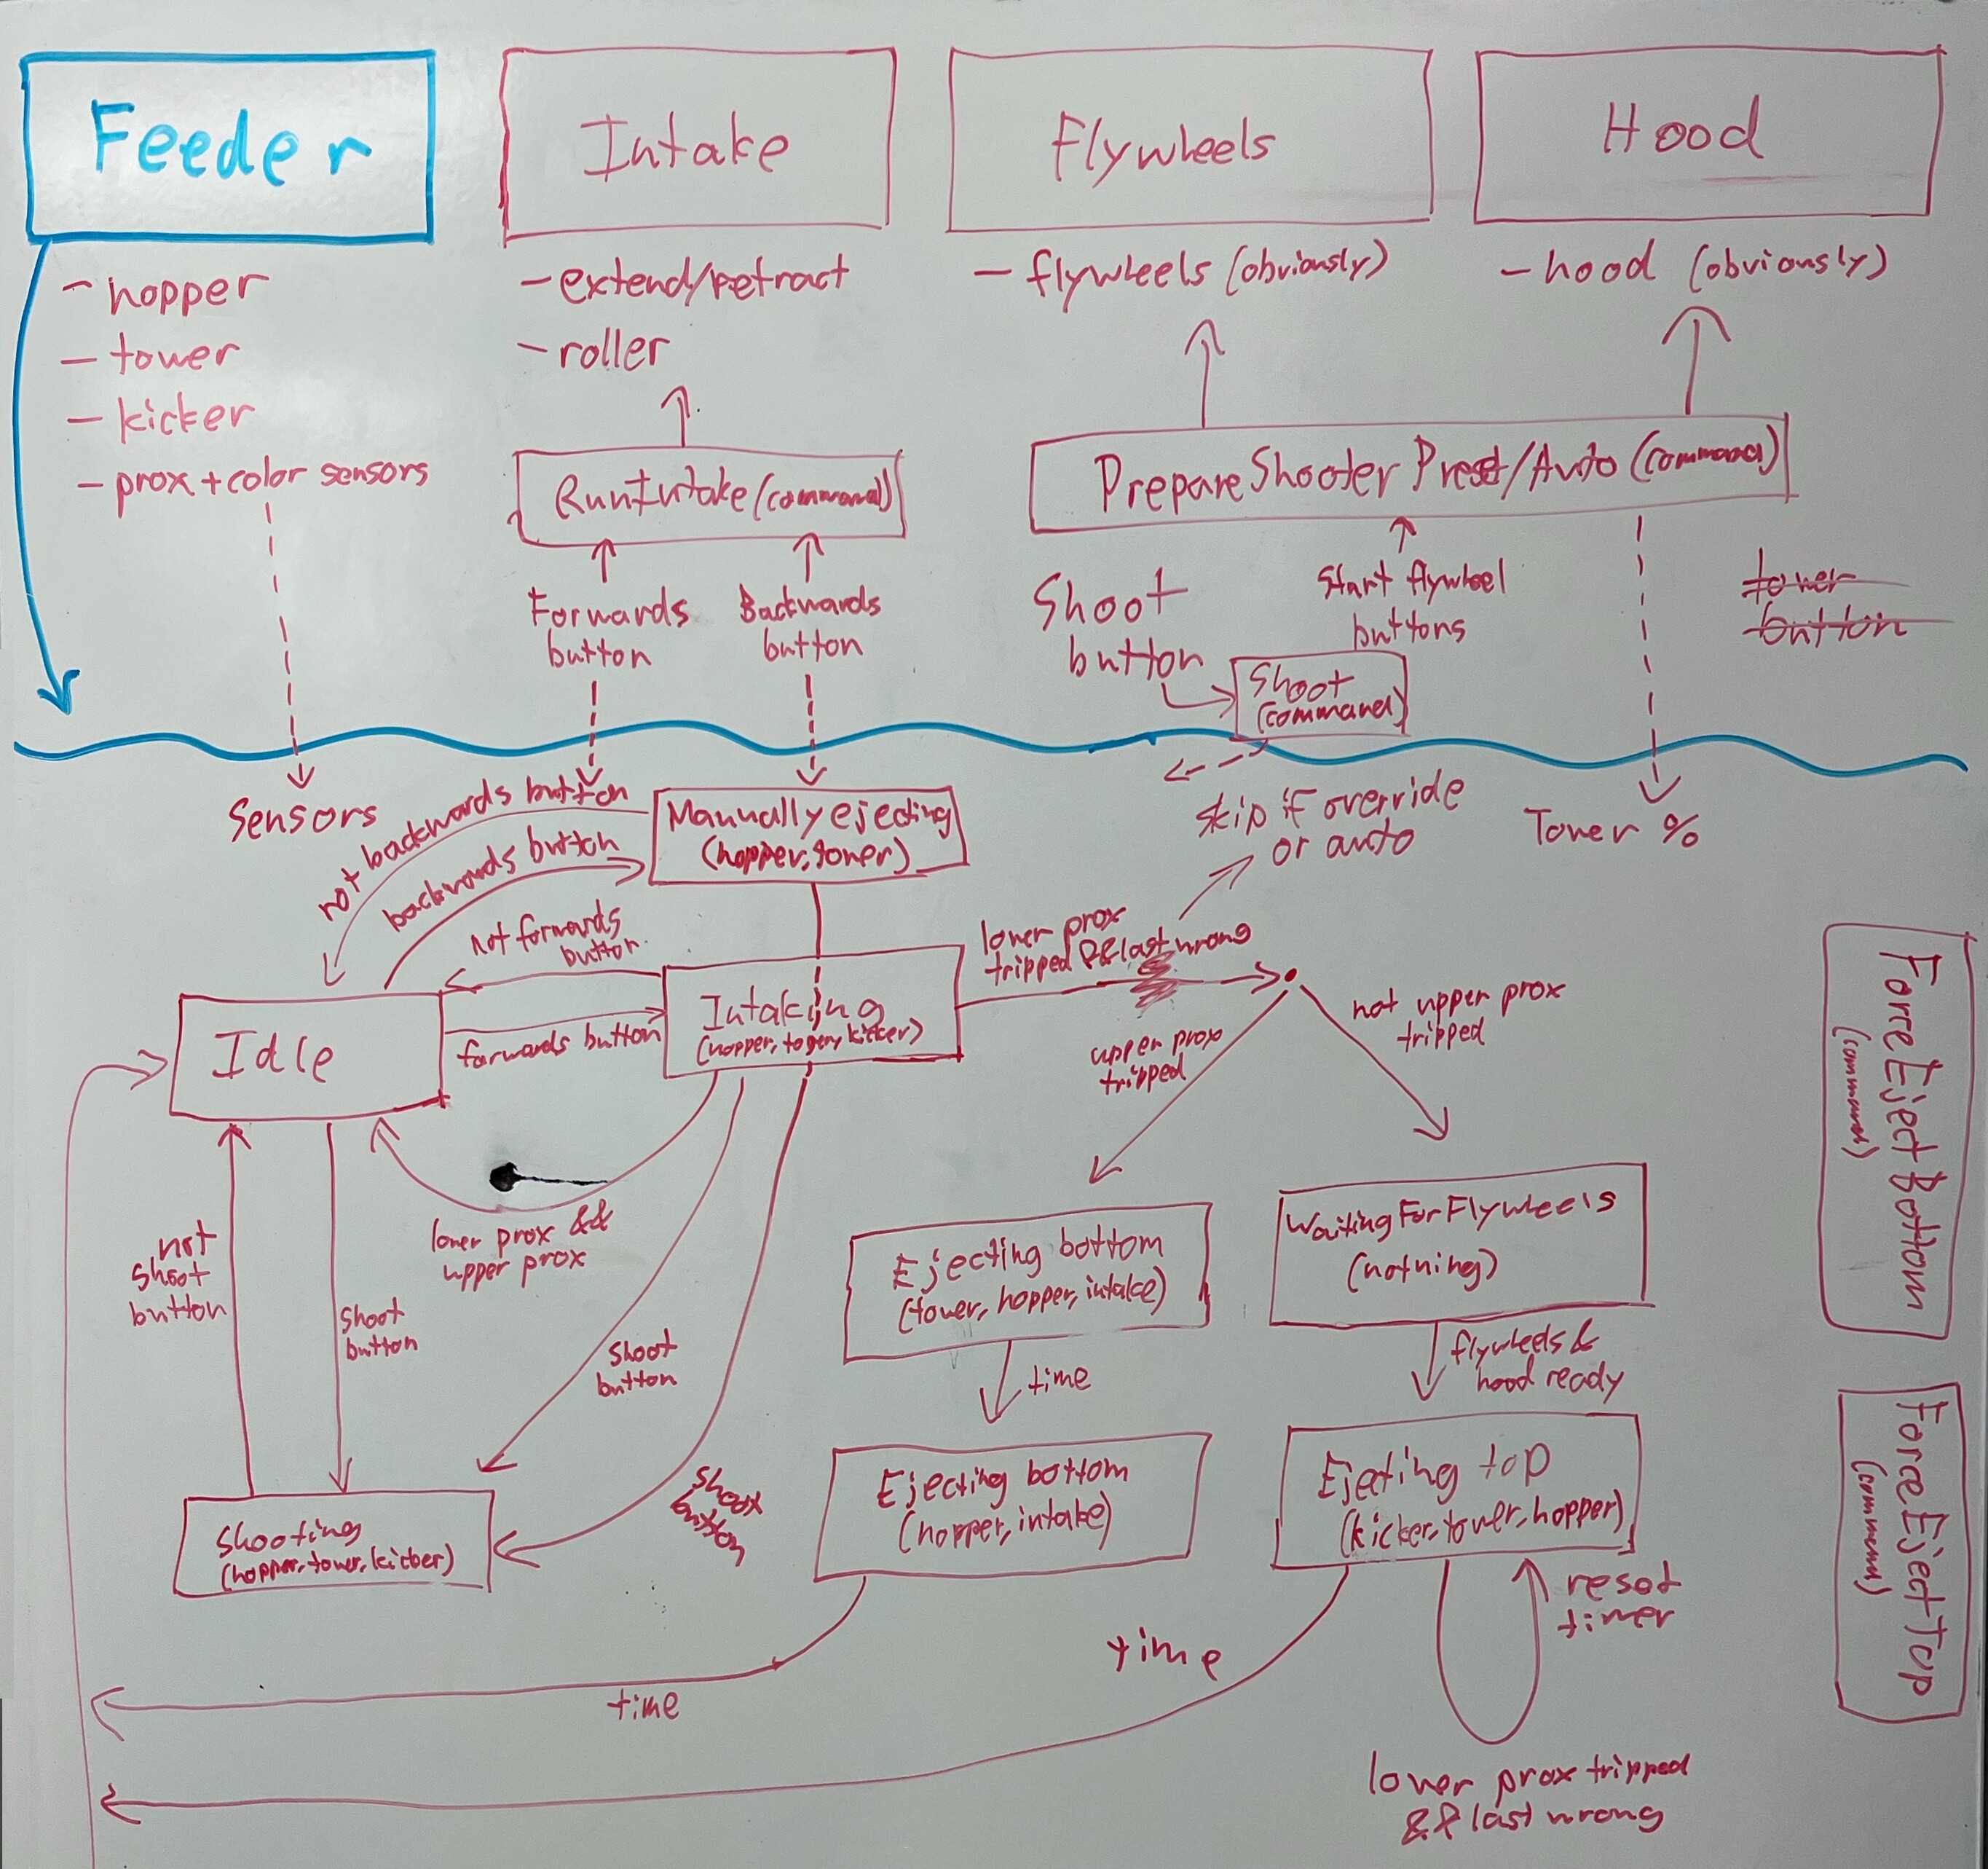 Feeder
- hopper
- tower
- kicker
- prox + color sensors
Intake
- extend/retract
- roller
RunIntake (command)
Forwards
button
Backwards
button
Flywheels
- flywheels (obviously)
Hood
- hood (obviously)
PrepareShooterPreset/Auto (command)
Shoot
button
Start flywheel
buttons
Shoot
(command)
tower
button
Sensors
not backwards button
backwards button
Manually ejecting
(hopper, tower)
skip if override
or auto
Tower %
not forwards
button
forwards button
Idle
Intaking
(hopper, tower, kicker)
lower prox
tripped && last wrong
upper prox
tripped
not upper prox
tripped
lower prox &&
upper prox
not
shoot
button
shoot
button
shoot
button
shoot
button
Shooting
(hopper, tower, kicker)
Ejecting bottom
(tower, hopper, intake)
time
Ejecting bottom
(hopper, intake)
time
WaitingForFlywheels
(nothing)
flywheels &
hood ready
Ejecting top
(kicker, tower, hopper)
time
reset
timer
lower prox tripped
&& last wrong
ForceEjectBottom
(command)
ForceEjectTop
(command)